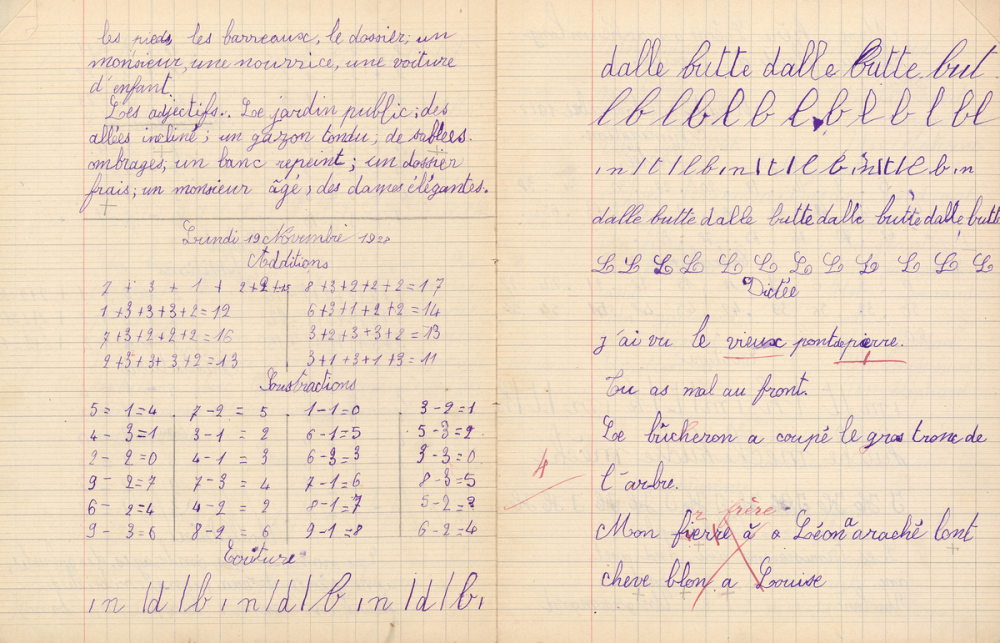 les pieds les barreaux, le dossier; un
monsieur, une nourrice, une voiture
d'enfant.
Les adjectifs. Le jardin public; des
allées incliné; un gazon tondu; de sublees.
ombrages; un banc repeint; un dossier
frais; un monsieur âgé; des dames élégantes.
Lundi 19 Novembre 1928
Additions
7 + 3 + 1 + 2+2 8+3+2+2+2=17
1+3+3+3+2=12 6+3+1+2+2=14
7+3+2+2+2=16 3+2+3+3+2=13
2+3+3+3+2=13 3+1+3+1+3=11
Soustractions
5 = 1=4 7-2 = 5 1-1=0 3-2=1
4 - 3=1 3-1 = 2 6-1=5 5-3=2
2 - 2=0 4-1 = 3 6-3=3 3-3=0
9 - 2=7 7-3 = 4 7-1=6 8-3=5
6 - 2=4 4-2 = 2 8-1=7 5-2=3
9 - 3=6 8-2 = 6 9-1=8 6-2=4
Ecriture
in /d/b in/d/b in/d/b,
dalle butte dalle butte but
l b l b l b l b l b l bl
in/t/lb in/t/l b in/t/l b in
dalle butte dalle butte dalle butte dalle butte
L L L L L L L L L L L
Dictée
j'ai vu le vieux pont de pierre.
Tu as mal au front.
Le bûcheron a coupé le gros tronc de
l'arbre.
4
r frère
Mon fierre à a Léon a araché lont
cheve blon a Louise